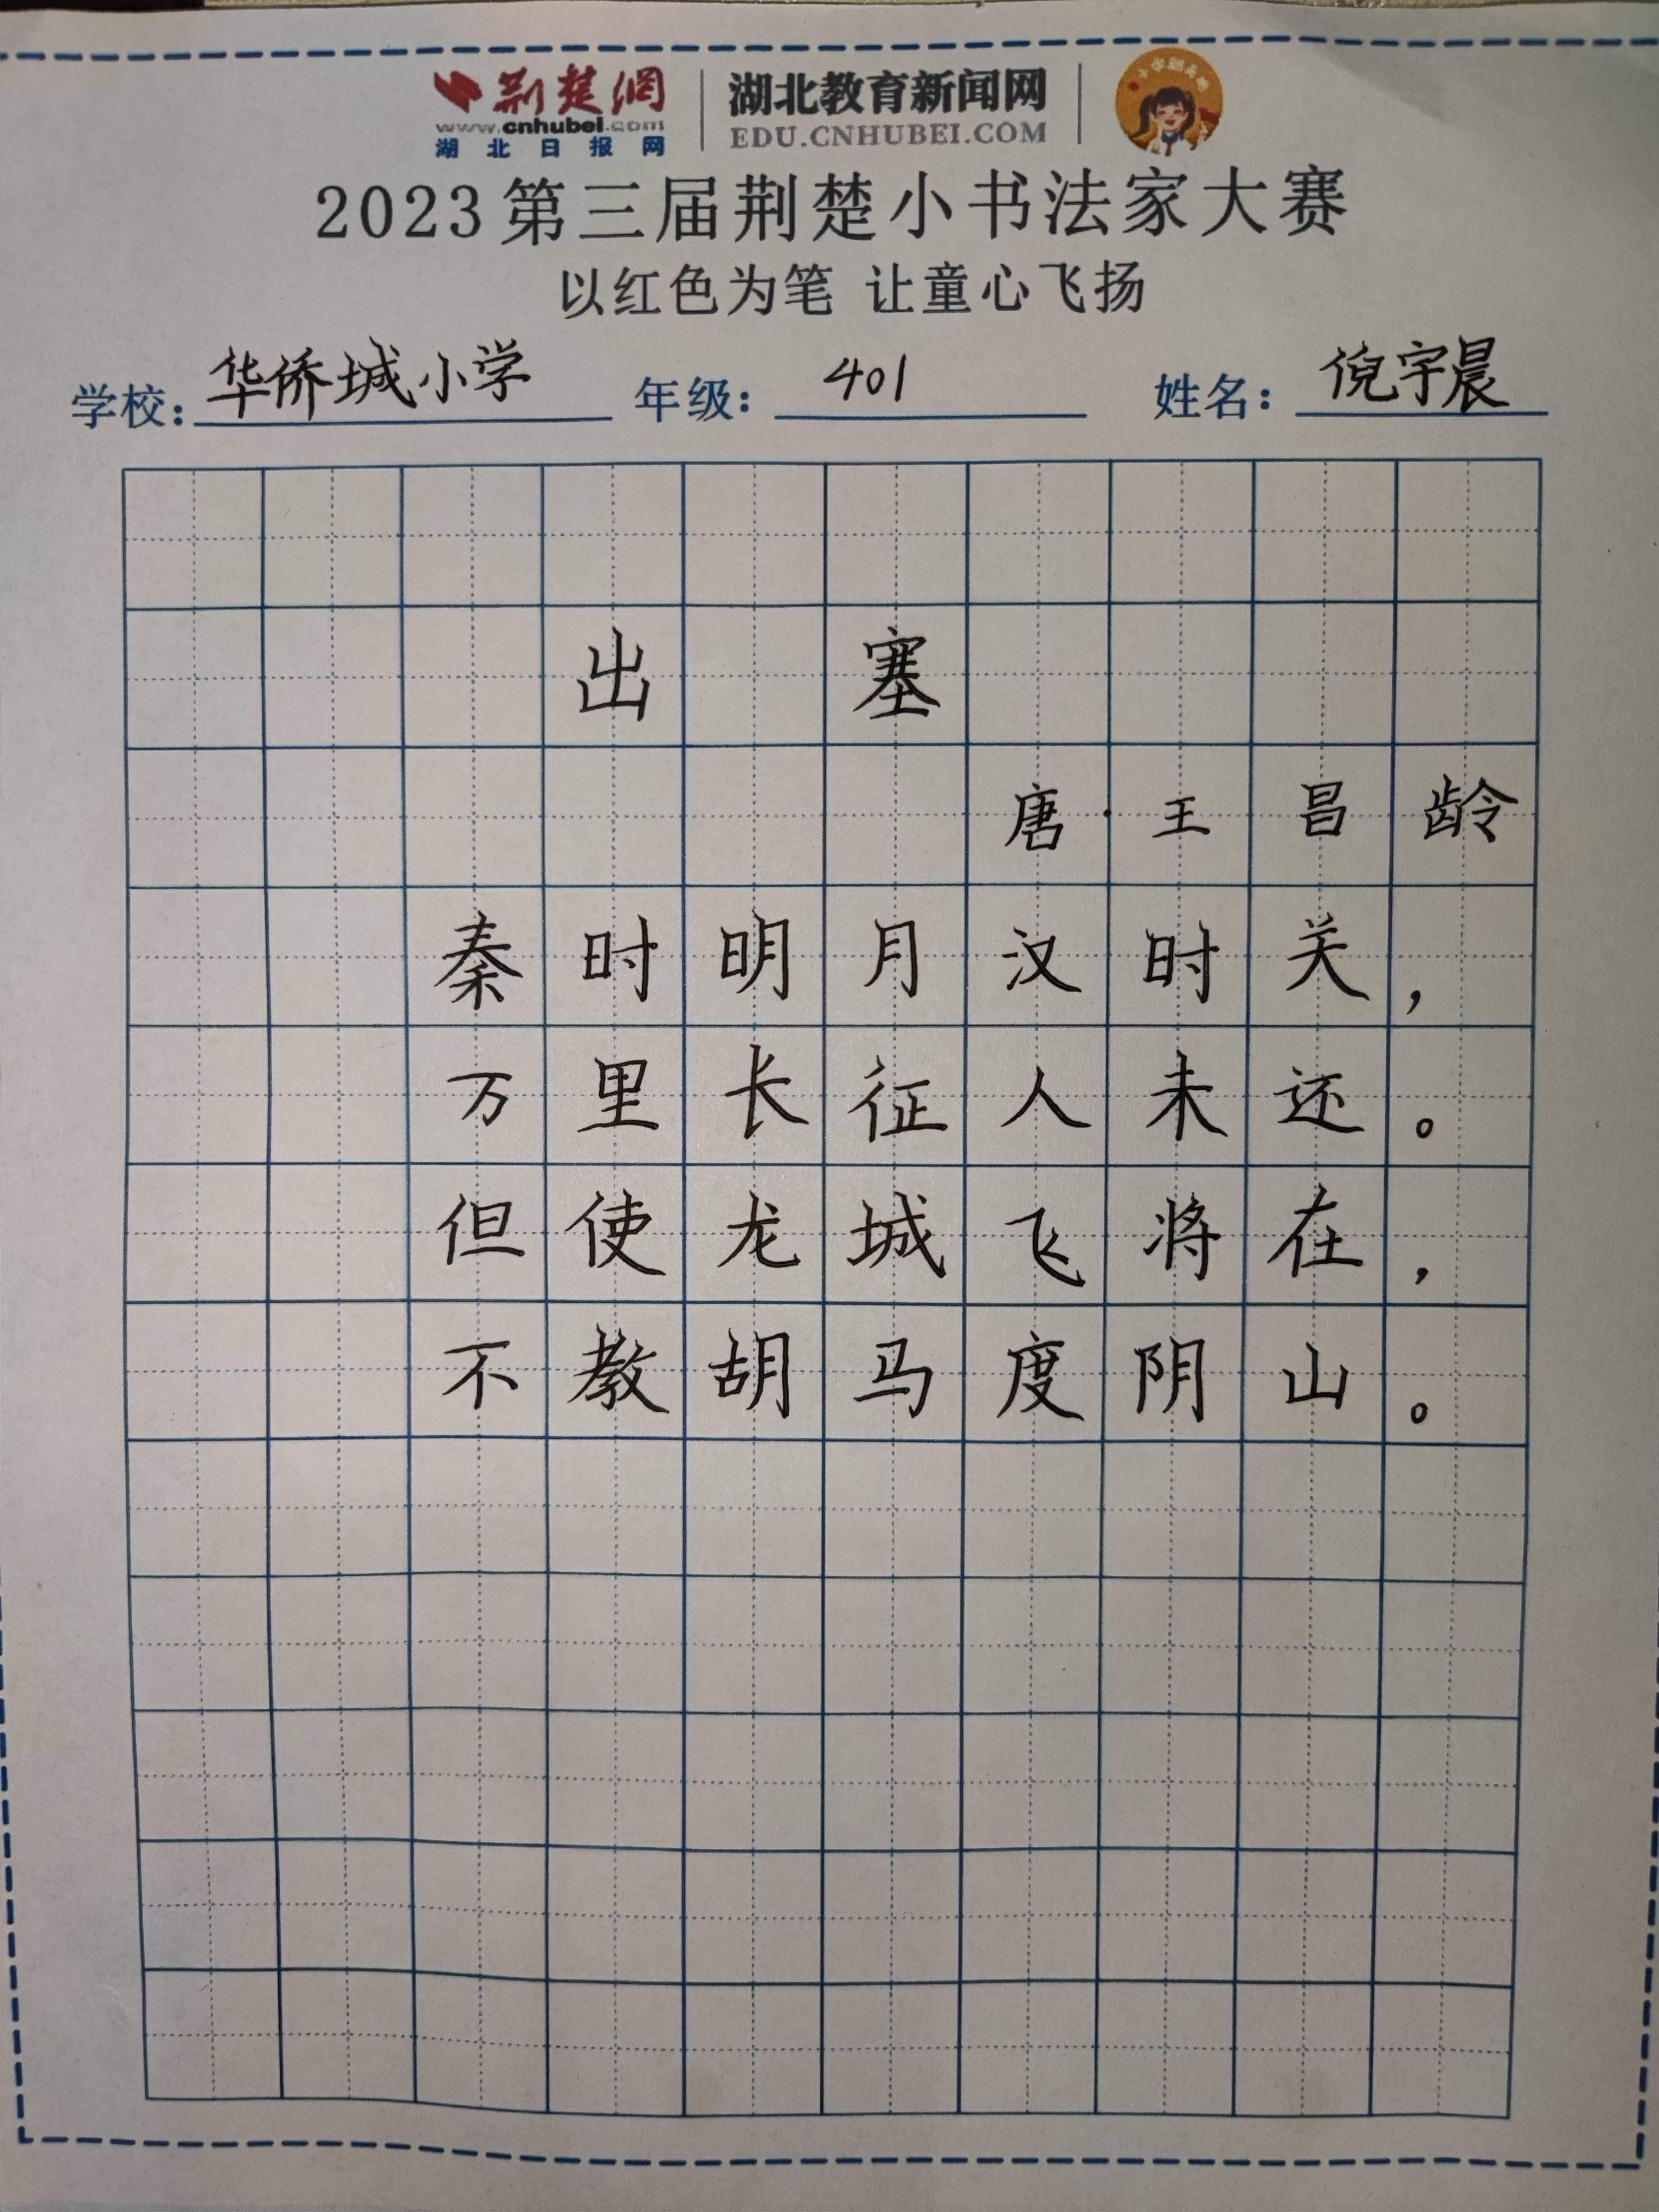 荆楚網
www.cnhubei.com
湖北日报网
湖北教育新闻网
EDU.CNHUBEI.COM
2023第三届荆楚小书法家大赛
以红色为笔 让童心飞扬
学校：华侨城小学 年级：401 姓名：倪宇晨
出塞
唐·王昌龄
秦时明月汉时关，
万里长征人未还。
但使龙城飞将在，
不教胡马度阴山。